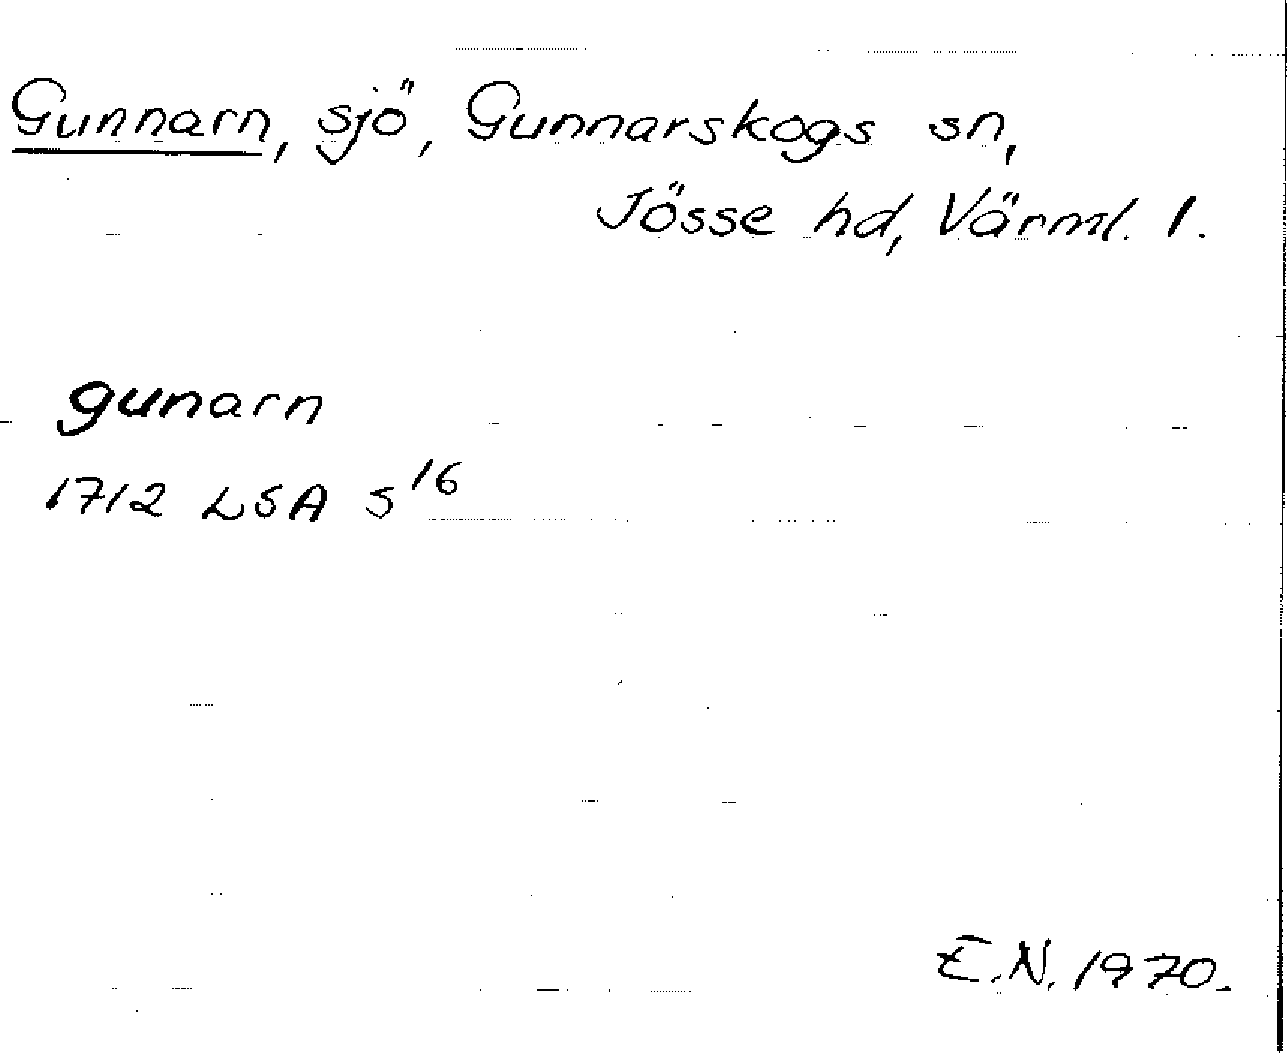 Gunnarn, sjö, Gunnarskogs sn,
Jösse hd, Värml. l.
gunarn
1712 LSA S 16
E.N. 1970.